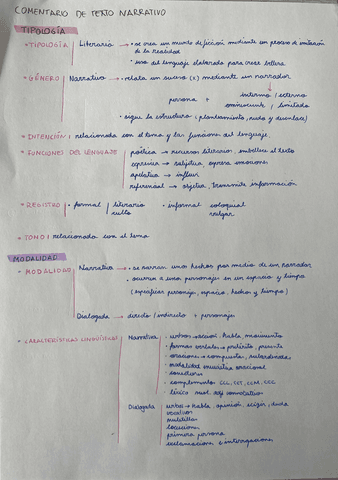 COMENTARIO DE TEXTO NARRATIVO
TIPOLOGÍA
• TIPOLOGÍA Literario → • se crea un mundo de ficción mediante un proceso de imitación de la realidad
• uso del lenguaje elaborado para crear belleza
• GÉNERO Narrativo → • relata un suceso (x) mediante un narrador
persona + interno / externo
omnisciente / limitado
• sigue la estructura (planteamiento, nudo y desenlace)
• INTENCIÓN: relacionada con el tema y las funciones del lenguaje.
• FUNCIONES DEL LENGUAJE poética → recursos literarios, embellece el texto
expresiva → subjetiva, expresa emociones
apelativa → influir
referencial → objetiva, transmite información
• REGISTRO • formal literario
culto
• informal coloquial
vulgar
• TONO: relacionado con el tema
MODALIDAD
• MODALIDAD Narrativa → • se narran unos hechos por medio de un narrador
• ocurren a unos personajes en un espacio y tiempo
(especificar personajes, espacio, hechos y tiempo)
Dialogada → directo / indirecto + personajes
• CARACTERÍSTICAS LINGUÍSTICAS Narrativa • verbos → acción, habla, movimiento
• formas verbales → pretérito, presente
• oraciones → compuestas, subordinadas
• modalidad enunciativa oracional
• conectores
• complementos CCL, CCT, CCM, CCC
• léxico
Dialogada • verbos → habla, opinión, exigir, duda
vocativos
muletillas
locuciones
primera persona
exclamaciones e interrogaciones